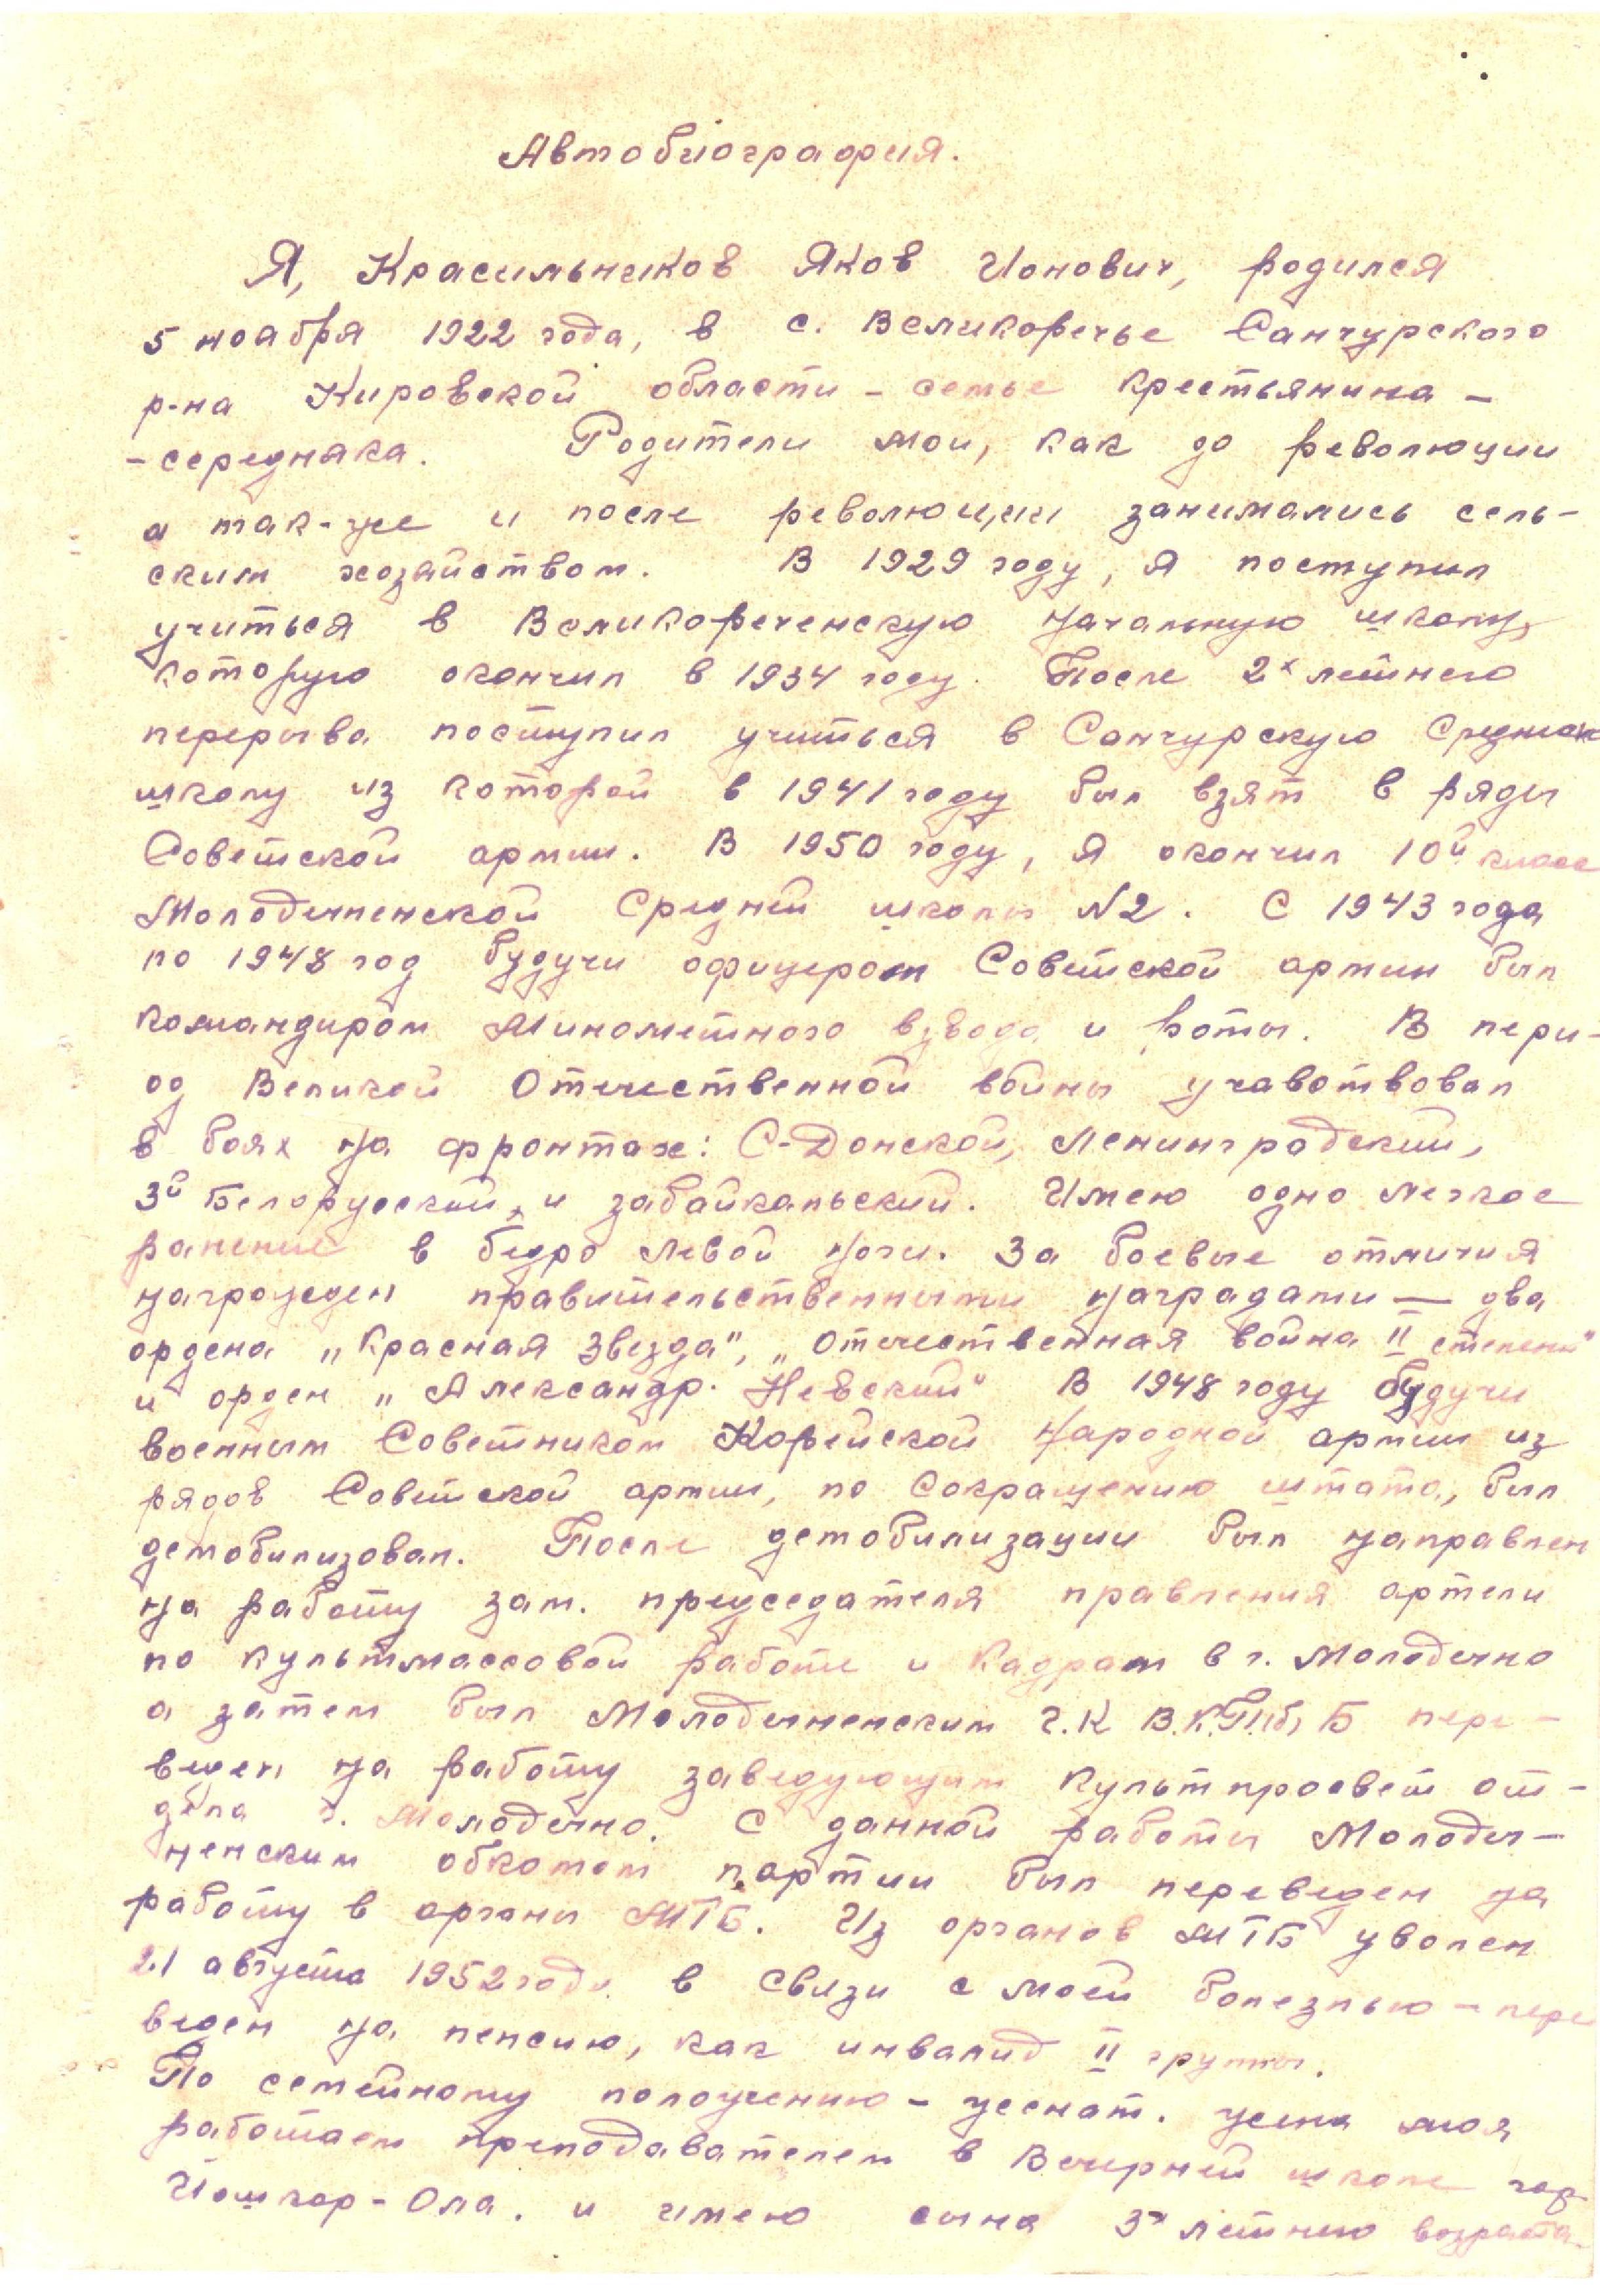 Автобиография.
Я, Красильников Яков Ионович, родился
5 ноября 1922 года, в с. Великоречье Санчурского
р-на Кировской области - семье крестьянина -
- середняка. Родители мои, как до революции
а так-же и после революции занимались сель-
ским хозяйством. В 1929 году, я поступил
учиться в Великореченскую начальную школу,
которую окончил в 1934 году. После 2х летнего
перерыва поступил учиться в Санчурскую Среднюю
школу из которой в 1941 году был взят в ряды
Советской армии. В 1950 году, я окончил 10й класс
Молодечненской Средней школы N2. С 1943 года
по 1948 год будучи офицером Советской армии был
командиром Минометного взвода и роты. В пери-
од Великой Отечественной войны учавствовал
в боях на фронтах: С-Донской, Ленинградский,
3й Белорусский, и забайкальский. Имею одно легкое
ранение в бедро левой ноги. За боевые отличия
награжден правительственными наградами — два
ордена „Красная Звезда", „Отечественная война II степени"
и орден „Александр. Невский" В 1948 году будучи
военным Советником Корейской Народной армии из
рядов Советской армии, по сокращению штата, был
демобилизован. После демобилизации был направлен
на работу зам. председателя правления артели
по культмассовой работе и кадрам в г. Молодечно
а затем был Молодечненским Г.К В.К.П.(б) Б пере-
веден на работу заведующим Культпросвет от-
дела г. Молодечно. С данной работы Молодеч-
ненским обкомом партии был переведен на
работу в органы МГБ. Из органов МГБ уволен
21 августа 1952 года в связи с моей болезнью - пере
веден на пенсию, как инвалид II группы.
По семейному положению - женат. жена моя
работает преподавателем в Вечерней школе гор
Йошкар-Ола. и имею сына 3х летнию возраста.